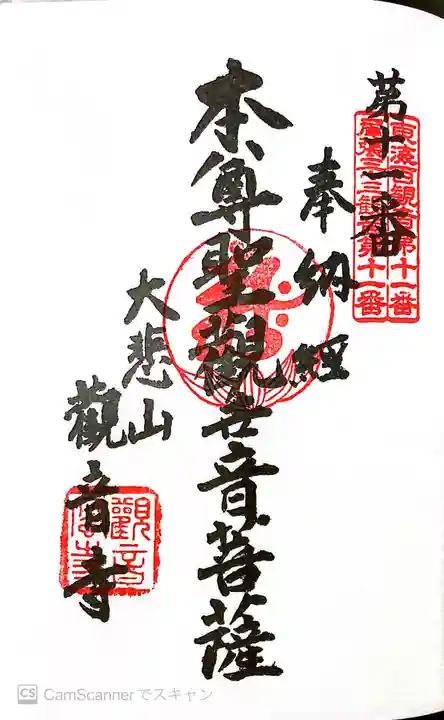 第十一番
東海百観音第十一番
尾張三三観音第十一番
奉納経
本尊聖觀世音菩薩
大悲山
觀音寺
CS CamScannerでスキャン